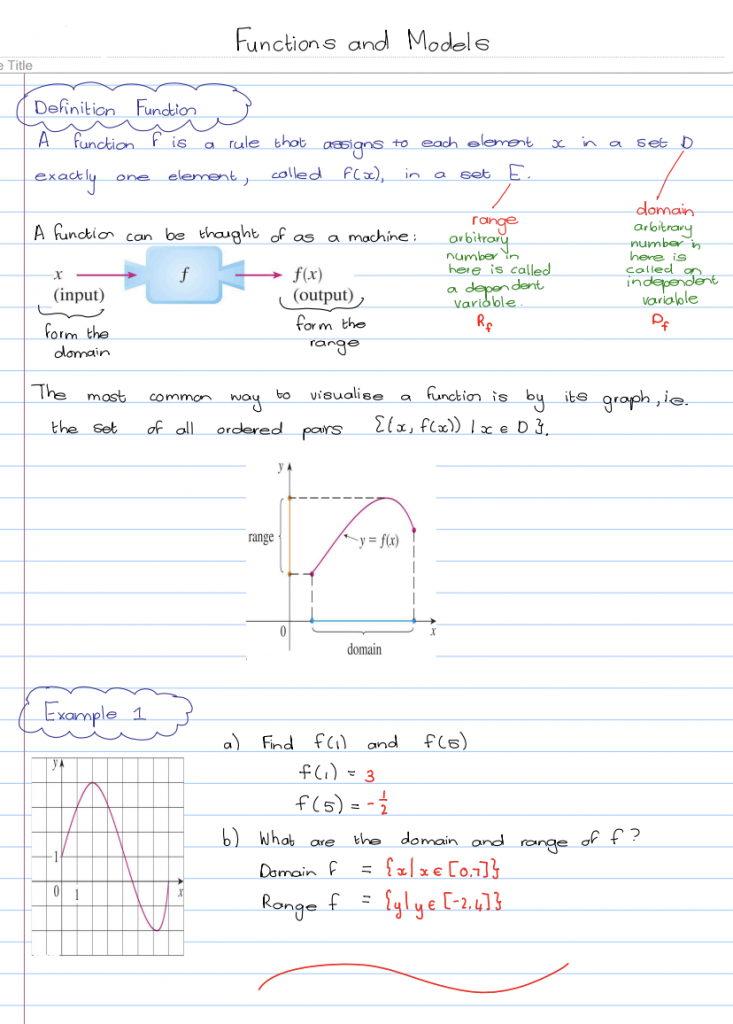 Functions and Models
e Title
Definition Function
A function f is a rule that assigns to each element x in a set D
exactly one element, called f(x), in a set E.
range
arbitrary
number in
here is called
a dependent
variable.
R_f
domain
arbitrary
number in
here is
called an
independent
variable
D_f
A function can be thought of as a machine:
x
(input)
f
f(x)
(output)
form the
domain
form the
range
The most common way to visualise a function is by its graph, ie.
the set of all ordered pairs {(x, f(x)) | x ∈ D}.
y
range
y = f(x)
0
x
domain
Example 1
a) Find f(1) and f(5)
f(1) = 3
f(5) = -1/2
b) What are the domain and range of f?
Domain f = {x| x ∈ [0,7]}
Range f = {y| y ∈ [-2,4]}
y
1
0 1 x